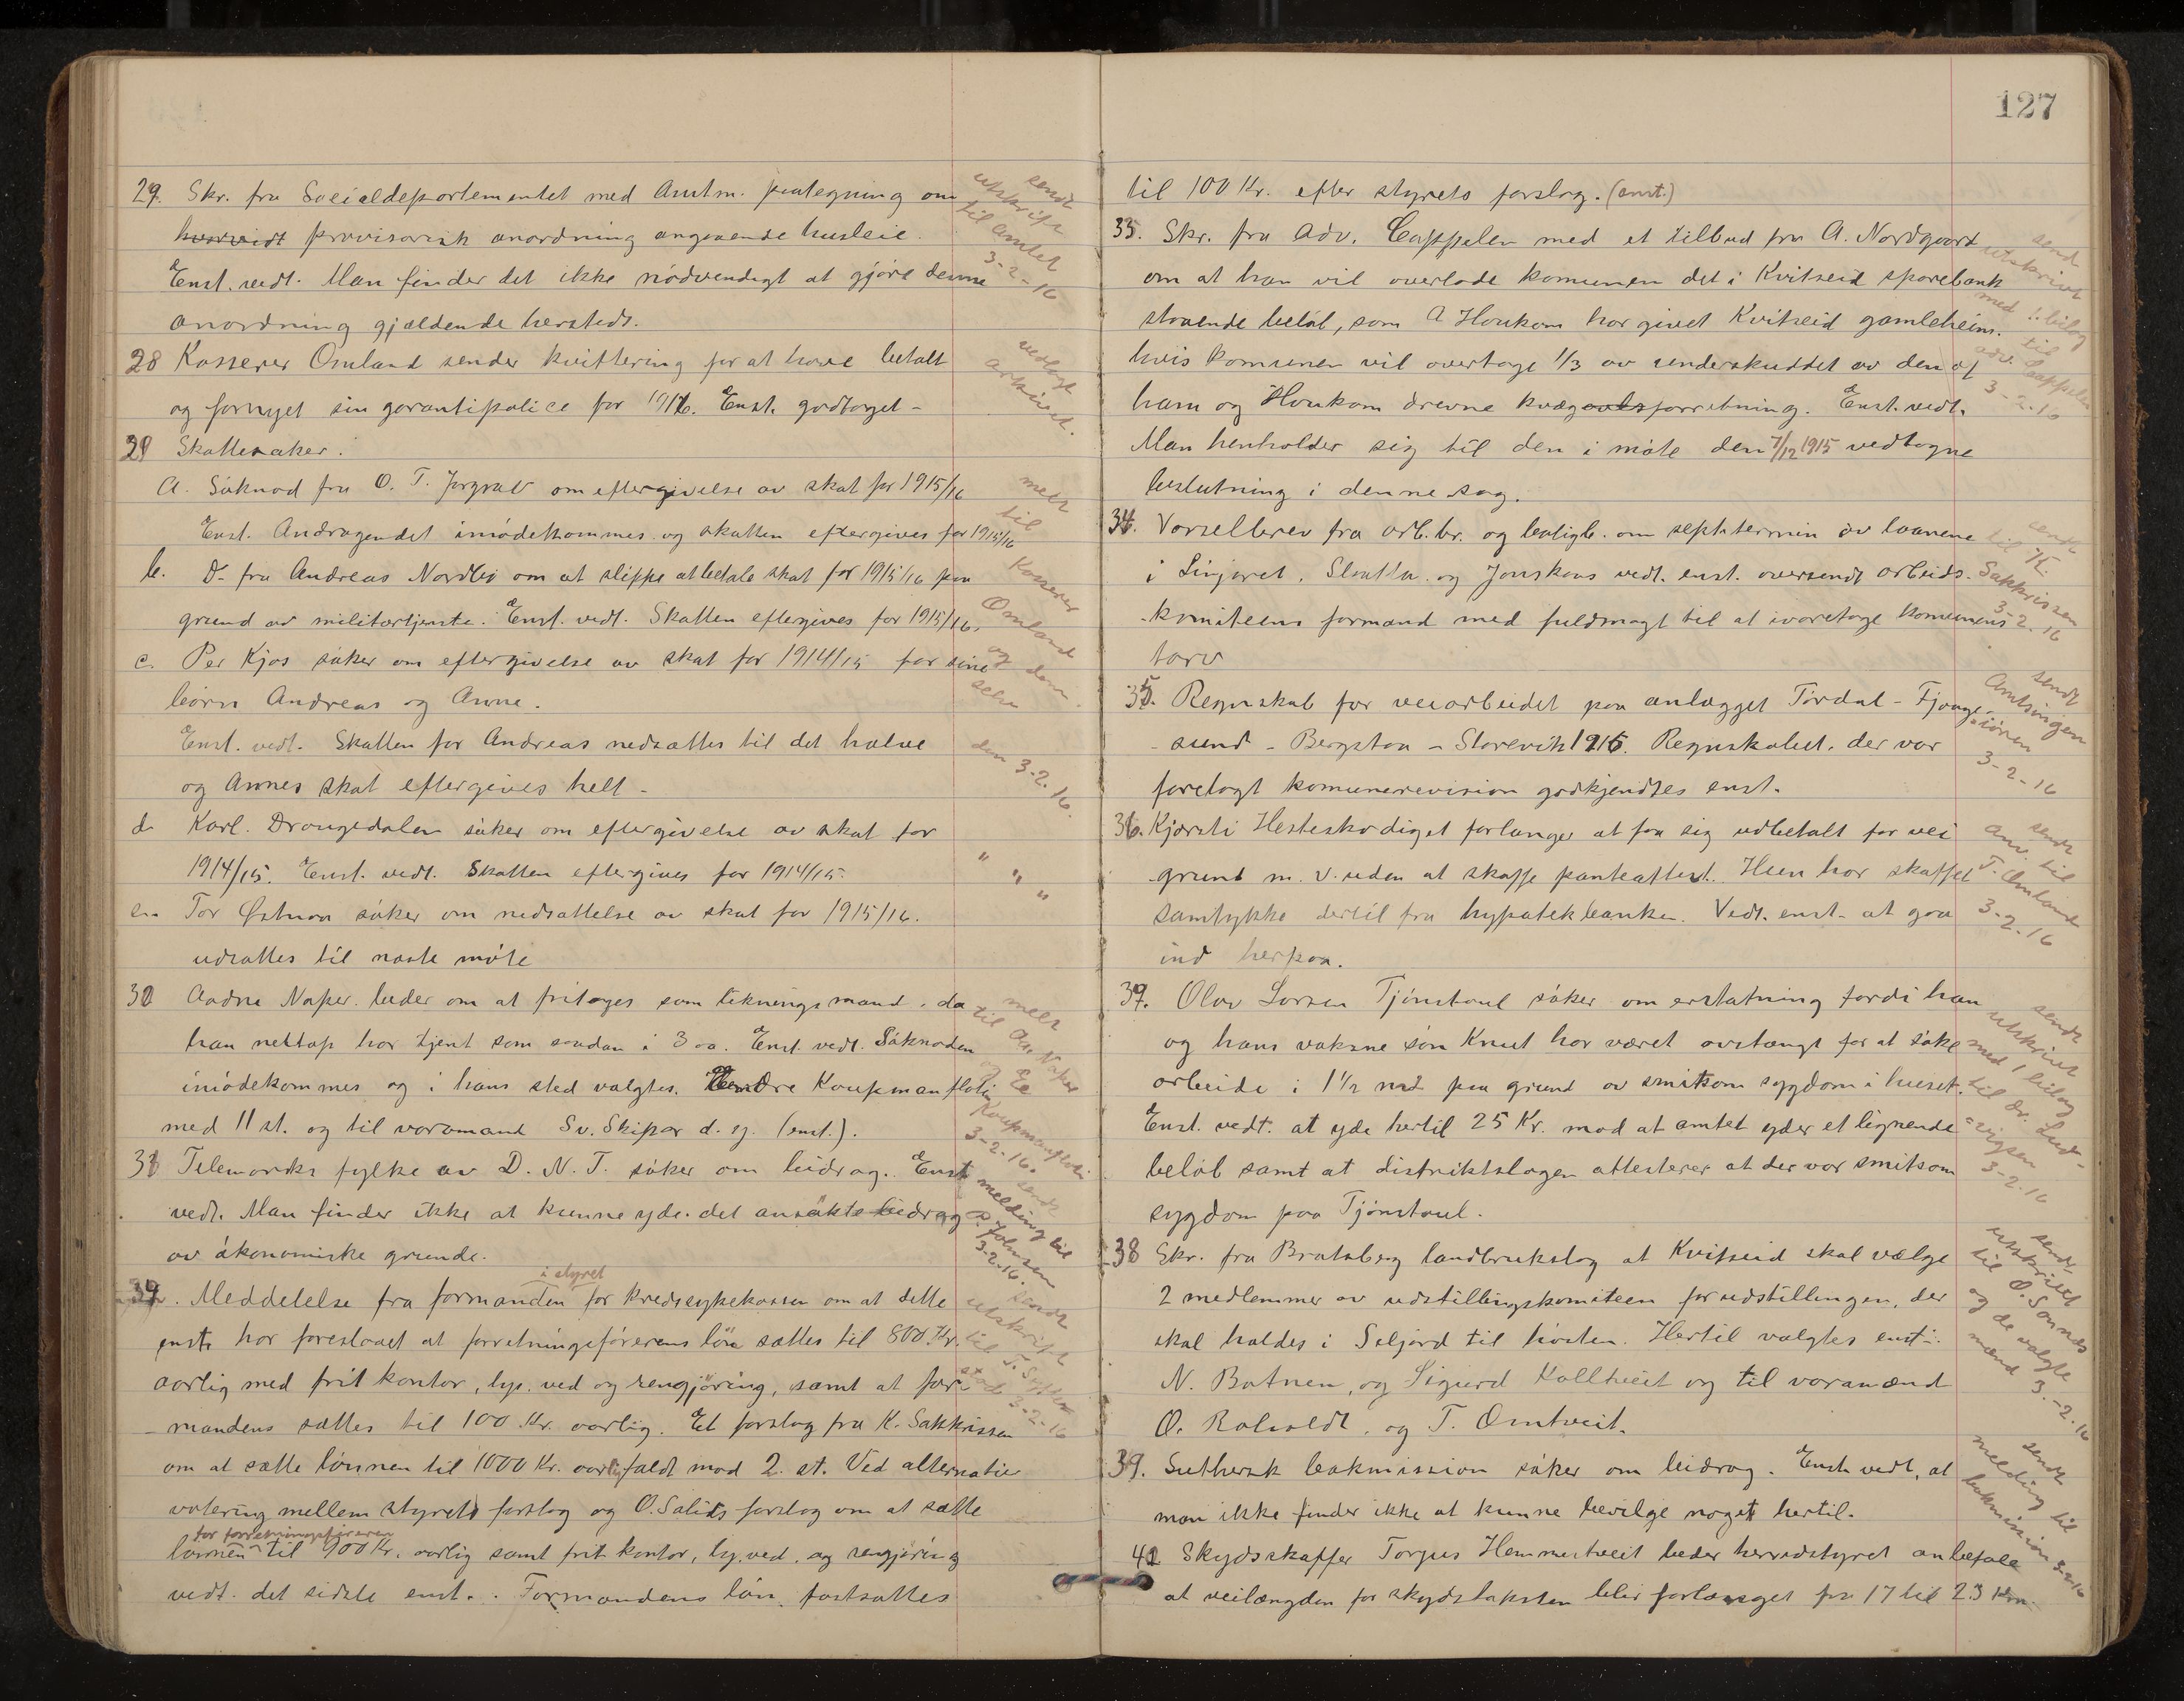 29. Skr. fra Socialdepartementet med Amtm. paategning om
hvorvidt provisorisk anordning angaaende husleie.
Enst. vedt. Man finder det ikke nödvendigt at gjöre denne
anordning gjældende hersteds.
sendt
utskrift
til amtet
3-2-16
28 Kasserer Omland sender kvittering for at have betalt
og fornyet sin garantipolice for 1916. Enst. godtaget -
vedlagt
arkivet.
29 Skattesaker.
a. Söknad fra O. T. om eftergivelse av skat for 1915/16
Enst. Andragendet imödekommes og skatten eftergives for 1915/16
b. D- fra Andreas Nordbö om at slippe at betale skat for 1915/16 paa
grund av militærtjeneste. Enst. vedt. Skatten eftergives for 1915/16.
c. Per Kjos söker om eftergivelse av skat for 1914/15 for sine
börn Andreas og Anne.
Enst. vedt. Skatten for Andreas nedsættes til det halve
og Annes skat eftergives helt -
d- Karl Drangedalen söker om eftergivelse av skat for
1914/15. Enst. vedt. Skatten eftergives for 1914/15.
e. Tor söker om nedsættelse av skat for 1915/16.
udsættes til næste möte
meld
til
Kasserer
Omland
og dem
selv
den 3-2.16.
" " "
30 Aadne Naper beder om at fritages som tekningsmand, da
han nettop har tjent som saadan i 3 aa. Enst. vedt. Söknaden
imödekommes og i hans sted valgtes Kaupmanflotin
med 11 st. og til varamand Sv. Skipar d. y. (enst.).
meld
til Aa. Naper
og
Kaupmanflotin
3-2-16.
31 Telemarks fylke av D. N. T. söker om bidrag. Enst.
vedt. Man finder ikke at kunne yde det ansökte bidrag
av ökonomiske grunde.
sendt
melding til
P. Johnsen
3-2-16.
32. Meddelelse fra formanden i styret for Kredssykekassen om at dette
enst. har foreslaaet at forretningsförerens lön sættes til 800 Kr.
aarlig med frit kontor, lys, ved og rengjöring, samt at for-
mandens sættes til 100 Kr. aarlig. Et forslag fra K. Sakkrissen
om at sætte lönnen til 1000 Kr. aarlig faldt mod 2 st. Ved alternativ
votering mellem styrets forslag og O. Salids forslag om at sætte
lönnen for forretningsföreren til 900 Kr. aarlig samt frit kontor, lys, ved og rengjöring
vedt. det sidste enst. Formandens lön fastsættes
sendt
utskrift
til
3-2-16
127
til 100 Kr. efter styrets forslag. (enst.)
33. Skr. fra Adv. Cappelen med et tilbud fra A. Nordgaard
om at han vil overlade komunen det i Kvitseid sparebank
staaende belöb, som A Haukom har givet Kvitseid gamleheim.
hvis komunen vil overtage 1/3 av underskuddet av den af
ham og Haukom drevne kvægavlsforretning. Enst. vedt.
Man henholder sig til den i möte den 7/12 1915 vedtagne
beslutning i denne sag.
send
utskrivt
med 1 bilag
til
adv. Cappelen
3-2.16
34. Varselbrev fra arb.br. og boligb. om septr termin av laanene
i Linjaret, Slaatta og Jonskaas vedt. enst. oversendt arbeids-
komiteens formand med fuldmagt til at ivaretage komunens
tarv
sendt
til K.
Sakkrissen
3-2.16
35. Regnskab for veiarbeidet paa anlægget Tördal - Fjaage-
sund - Bergstaa - Storevik 1915. Regnskabet, der var
foretagt komunerevision godkjendtes enst.
sendt
Amtsingen
iören
3-2-16
36. Kjersti Hesteskodiget forlanger at faa sig udbetalt for vei
grund m. v. uden at skaffe panteattest. Hun har skaffet
samtykke dertil fra hypotekbanken. Vedt. enst. at gaa
ind herpaa.
sendt
anv. til
T. Omland
3-2.16
37. Olav Larsen Tjönstaul söker om erstatning fordi han
og hans voksne sön Knut har været avstængt for at söke
arbeide i 1 1/2 md paa grund av smitsom sygdom i huset.
Enst. vedt. at yde hertil 25 Kr. mod at amtet yder et lignende
belöb samt at distriktslægen attesterer at der var smitsom
sygdom paa Tjönstaul.
sendt
utskrivt
med 1 bilag
til dr. Lud-
vigsen
3-2.16
38 Skr. fra Bratsberg landbrukslag at Kvitseid skal vælge
2 medlemmer av udstillingskomiteen for udstillingen, der
skal holdes i Seljord til hösten. Hertil valgtes enst.:
N. Botnen, og Sigurd Kolltveit og til varamænd
O. Roholdt, og T. Omtveit.
sendt
utskrivt
til O. Sonnes
og de valgte
mænd 3.-2.16
39. Luthersk bokmission söker om bidrag. Enst. vedt, at
man ikke finder ikke at kunne bevilge noget hertil.
sendt
melding til
bokmission 3-2-16
41 Skydsskaffer Torgus Hemmestveit beder herredstyret anbefale
at veilængden for skydstaksten blir forlænget fra 17 til 23 Km.